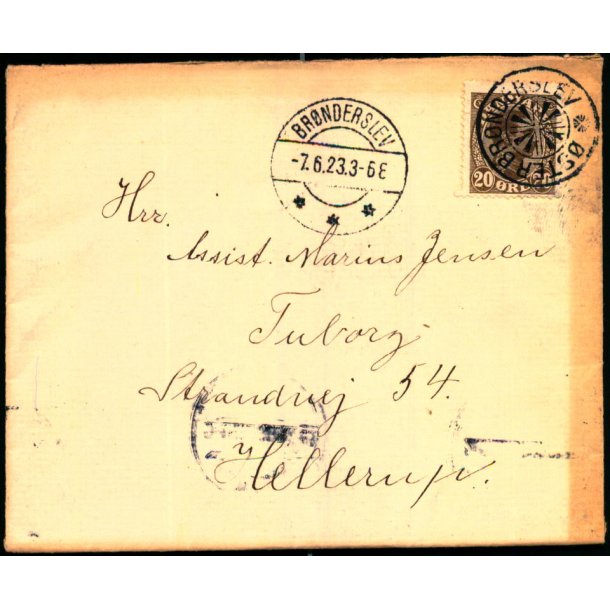 BRØNDERSLEV
-7.6.23.3-6E
ØSTER BRØNDERSLEV
20 ØRE 20
Hrr.
Assist. Marius Jensen
Tuborg
Strandvej 54.
Hellerup.